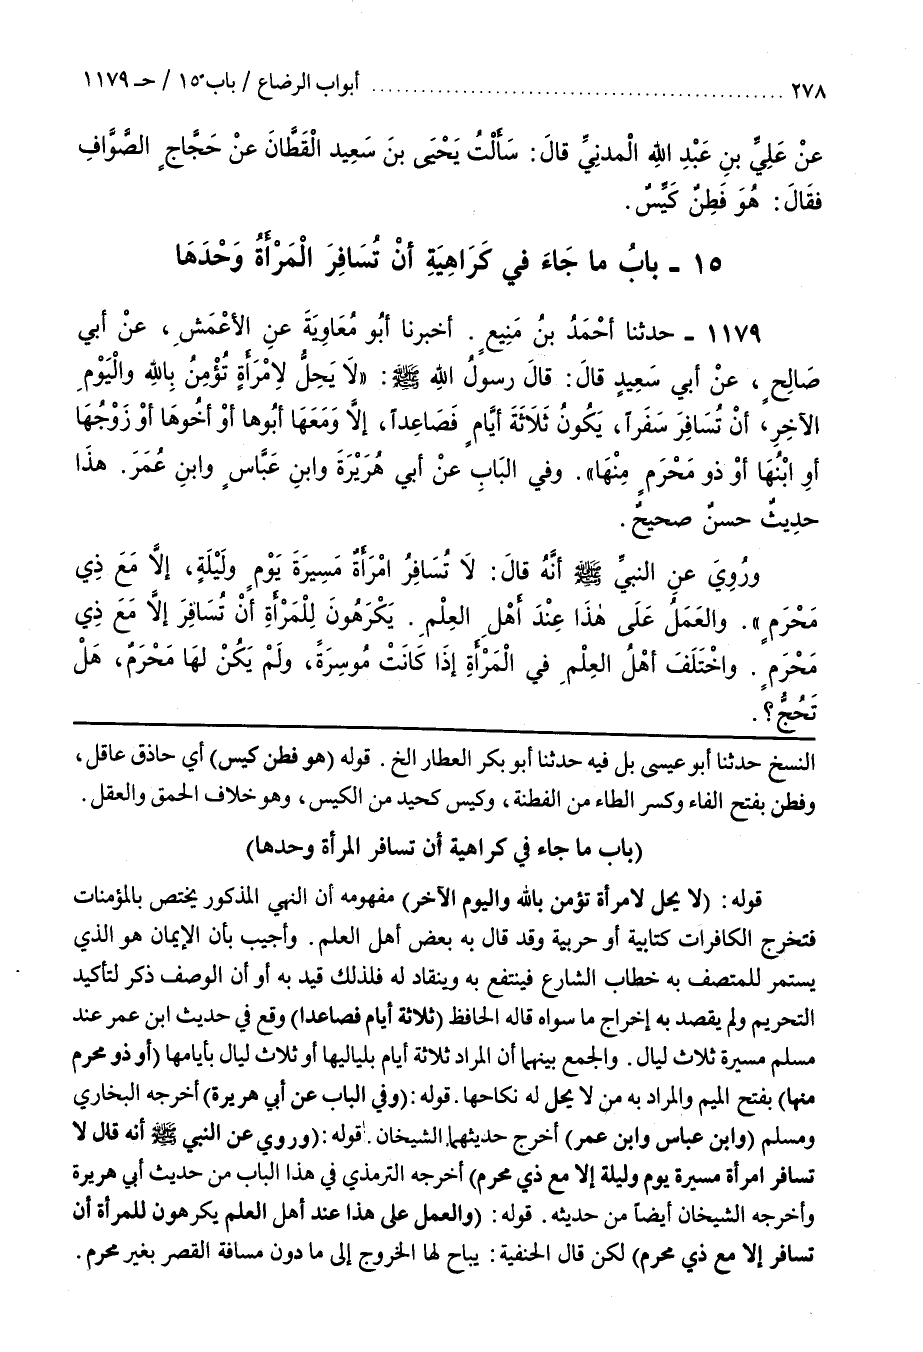 ٢٧٨ ........................................ أبواب الرضاع / باب ١٥ / حـ ١١٧٩
عنْ عَلِيِّ بنِ عَبْدِ اللهِ الْمدنِيِّ قالَ: سَأَلْتُ يَحْيَى بنَ سَعِيدِ الْقَطَّانَ عنْ حَجَّاجٍ الصَّوَّافِ
فقَالَ: هُوَ فَطِنٌ كَيِّسٌ.
١٥ - بابُ ما جَاءَ في كَرَاهِيَةِ أنْ تُسَافِرَ الْمَرْأَةُ وَحْدَهَا
١١٧٩ - حدثنا أحْمَدُ بنُ مَنِيعٍ. أخبرنا أبُو مُعَاوِيَةَ عنِ الأعْمَشِ، عنْ أبي
صَالِحٍ، عنْ أبي سَعِيدٍ قالَ: قالَ رسولُ اللهِ ﷺ: «لَا يَحِلُّ لِامْرَأةٍ تُؤْمِنُ بِاللهِ والْيَوْمِ
الآخِرِ، أنْ تُسَافِرَ سَفَراً، يَكُونُ ثَلَاثَةَ أيَّامٍ فَصَاعِداً، إلَّا وَمَعَهَا أبُوها أوْ أخُوهَا أوْ زَوْجُهَا
أوِ ابْنُهَا أوْ ذو مَحْرَمٍ مِنْهَا». وفي البَابِ عنْ أبي هُرَيْرَةَ وابنِ عَبَّاسٍ وابنِ عُمَرَ. هذَا
حدِيثٌ حسنٌ صحيحٌ.
ورُوِيَ عنِ النبيِّ ﷺ أنَّهُ قالَ: لَا تُسَافِرُ امْرَأةٌ مَسِيرَةَ يَوْمٍ ولَيْلَةٍ، إلَّا مَعَ ذِي
مَحْرَمٍ». والعَمَلُ عَلَى هٰذَا عِنْدَ أَهْلِ العِلْمِ. يَكْرَهُونَ لِلْمَرْأةِ أنْ تُسَافِرَ إلَّا مَعَ ذِي
مَحْرَمٍ. واخْتَلَفَ أهْلُ العِلْمِ في الْمَرْأةِ إذَا كَانَتْ مُوسِرَةً، ولَمْ يَكُنْ لهَا مَحْرَمٌ، هَلْ
تَحُجُّ؟.
النسخ حدثنا أبو عيسى بل فيه حدثنا أبو بكر العطار الخ. قوله (هو فطن كيس) أي حاذق عاقل،
وفطن بفتح الفاء وكسر الطاء من الفطنة، وكيس كحيد من الكيس، وهو خلاف الحمق والعقل.
(باب ما جاء في كراهية أن تسافر المرأة وحدها)
قوله: (لا يحل لامرأة تؤمن بالله واليوم الآخر) مفهومه أن النهي المذكور يختص بالمؤمنات
فتخرج الكافرات كتابية أو حربية وقد قال به بعض أهل العلم. وأجيب بأن الإيمان هو الذي
يستمر للمتصف به خطاب الشارع فينتفع به وينقاد له فلذلك قيد به أو أن الوصف ذكر لتأكيد
التحريم ولم يقصد به إخراج ما سواه قاله الحافظ (ثلاثة أيام فصاعدا) وقع في حديث ابن عمر عند
مسلم مسيرة ثلاث ليال. والجمع بينهما أن المراد ثلاثة أيام بلياليها أو ثلاث ليال بأيامها (أو ذو محرم
منها) بفتح الميم والمراد به من لا يحل له نكاحها. قوله: (وفي الباب عن أبي هريرة) أخرجه البخاري
ومسلم (وابن عباس وابن عمر) أخرج حديثهما الشيخان. قوله: (وروي عن النبي ﷺ أنه قال لا
تسافر امرأة مسيرة يوم وليلة إلا مع ذي محرم) أخرجه الترمذي في هذا الباب من حديث أبي هريرة
وأخرجه الشيخان أيضاً من حديثه. قوله: (والعمل على هذا عند أهل العلم يكرهون للمرأة أن
تسافر إلا مع ذي محرم) لكن قال الحنفية: يباح لها الخروج إلى ما دون مسافة القصر بغير محرم.